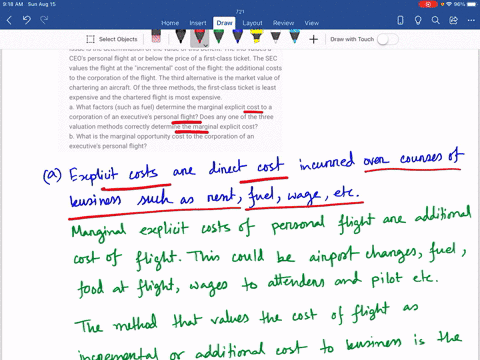 9:18 AM Sun Aug 15
96%
721
Home Insert Draw Layout Review View
Select Objects
Draw with Touch
issue is the determination of the value of this benefit. The IRS values a
CEO's personal flight at or below the price of a first-class ticket. The SEC
values the flight at the "incremental" cost of the flight: the additional costs
to the corporation of the flight. The third alternative is the market value of
chartering an aircraft. Of the three methods, the first-class ticket is least
expensive and the chartered flight is most expensive.
a. What factors (such as fuel) determine the marginal explicit cost to a
corporation of an executive's personal flight? Does any one of the three
valuation methods correctly determine the marginal explicit cost?
b. What is the marginal opportunity cost to the corporation of an
executive's personal flight?
(a) Explicit costs are direct cost incurred over courses of
business such as rent, fuel, wage, etc.
Marginal explicit costs of personal flight are additional
cost of flight. This could be airport changes, fuel,
food at flight, wages to attenders and pilot etc.
The method that values the cost of flight as
incremental or additional cost to business is the